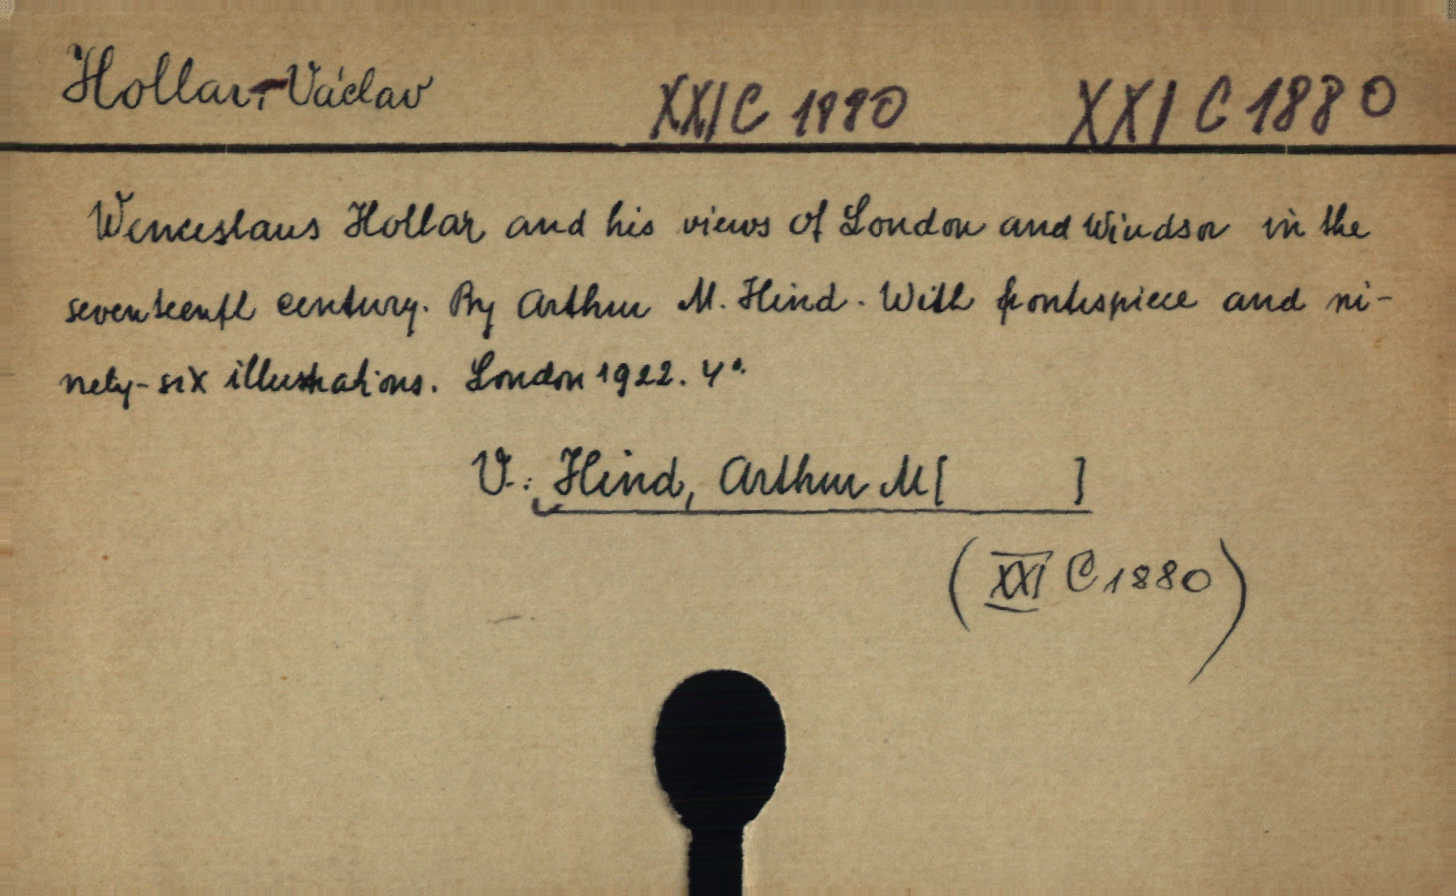 Hollar, Václav XXI C 1880 XXI C 1880
Wenceslaus Hollar and his views of London and Windsor in the
seventeenth century. By Arthur M. Hind. With frontispiece and ni-
nety-six illustrations. London 1922. 4°.
V.: Hind, Arthur M[ ]
(XXI C 1880)